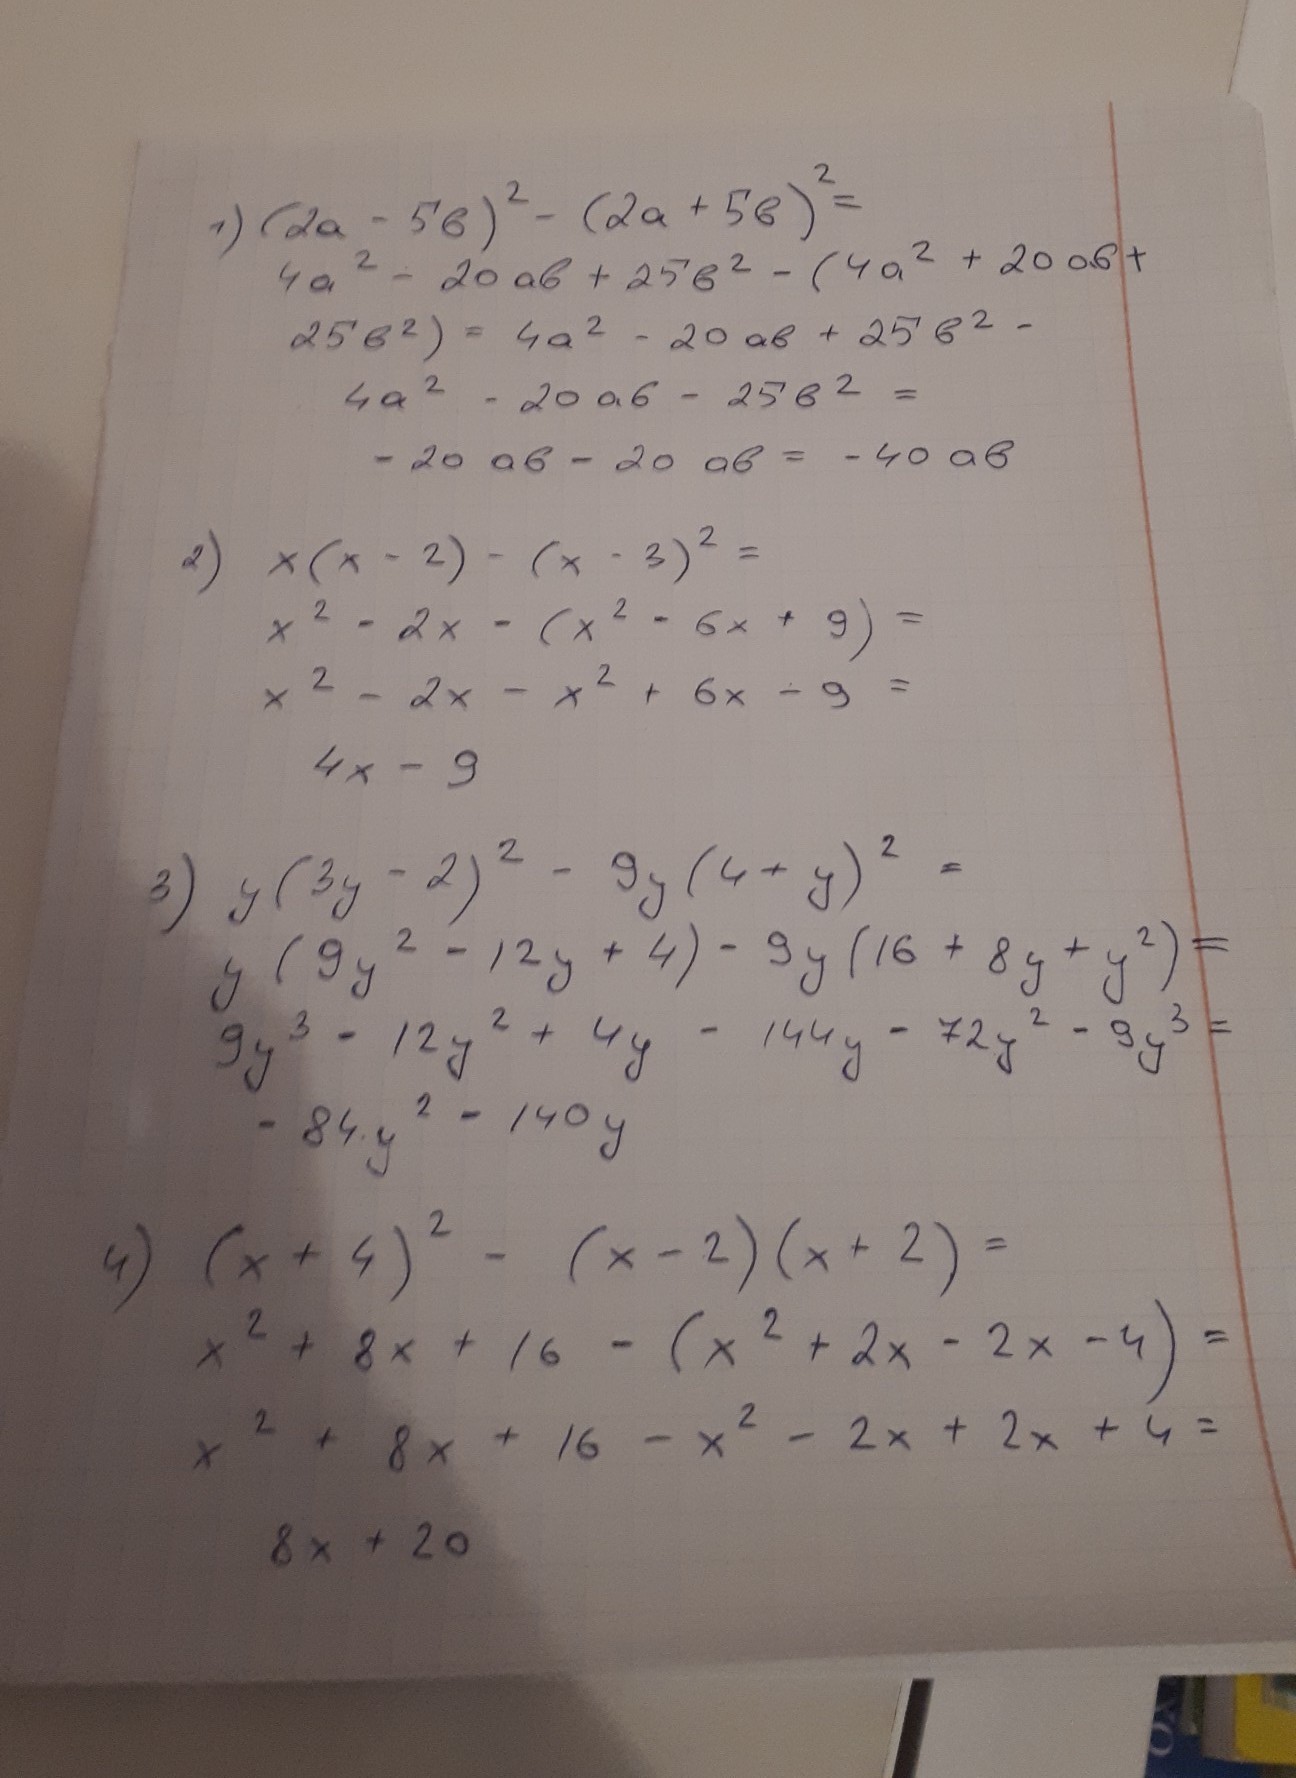 1) (2a - 5в)² - (2a + 5в)² =
4a² - 20aв + 25в² - (4a² + 20aв +
25в²) = 4a² - 20aв + 25в² -
4a² - 20aв - 25в² =
- 20aв - 20aв = - 40aв
2) x(x - 2) - (x - 3)² =
x² - 2x - (x² - 6x + 9) =
x² - 2x - x² + 6x - 9 =
4x - 9
3) y(3y - 2)² - 9y(4 + y)² =
y(9y² - 12y + 4) - 9y(16 + 8y + y²) =
9y³ - 12y² + 4y - 144y - 72y² - 9y³ =
- 84y² - 140y
4) (x + 4)² - (x - 2)(x + 2) =
x² + 8x + 16 - (x² + 2x - 2x - 4) =
x² + 8x + 16 - x² - 2x + 2x + 4 =
8x + 20